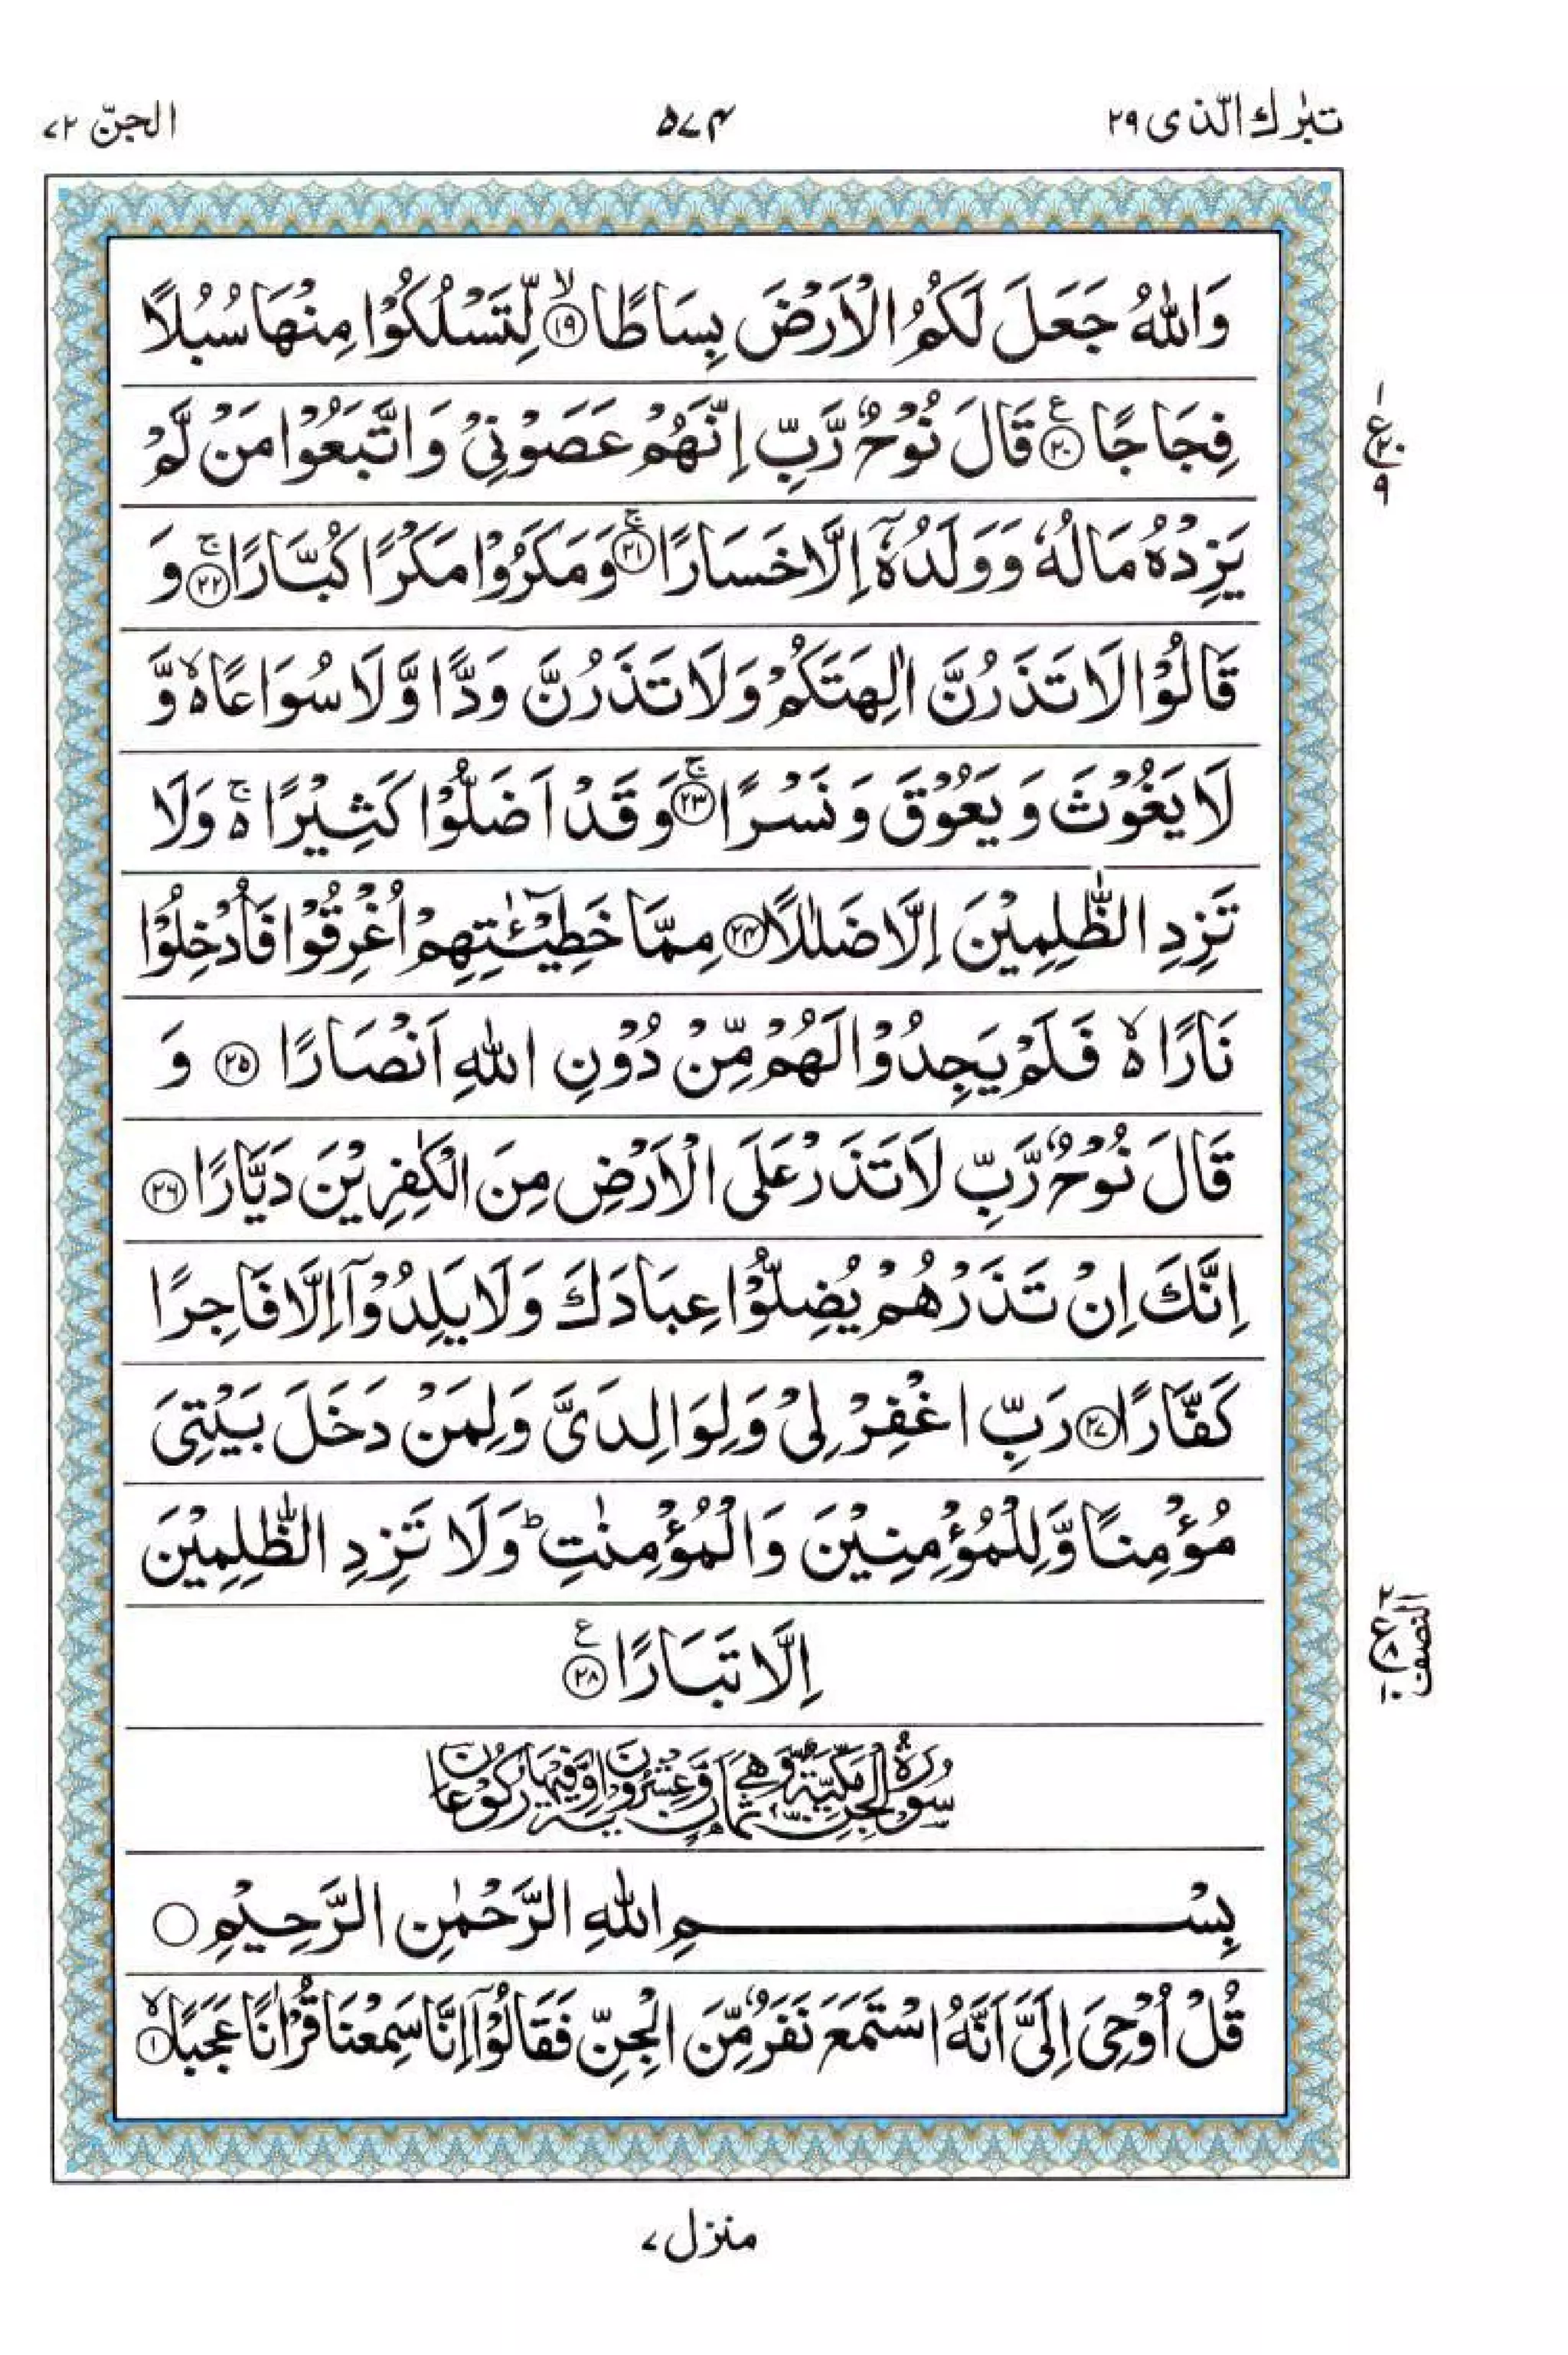 تبٰرك الّذی ۲۹
۵۷۴
الجنّ ۷۲
وَاللّٰهُ جَعَلَ لَكُمُ الْاَرْضَ بِسَاطًا ۙ﴿۱۹﴾ لِّتَسْلُكُوْا مِنْهَا سُبُلًا
فِجَاجًا ﴿۲۰﴾ ع قَالَ نُوْحٌ رَّبِّ اِنَّهُمْ عَصَوْنِیْ وَ اتَّبَعُوْا مَنْ لَّمْ
یَزِدْهُ مَالُهٗ وَ وَلَدُهٗۤ اِلَّا خَسَارًا ۚ﴿۲۱﴾ وَ مَكَرُوْا مَكْرًا كُبَّارًا ۚ﴿۲۲﴾ وَ
قَالُوْا لَا تَذَرُنَّ اٰلِهَتَكُمْ وَ لَا تَذَرُنَّ وَدًّا وَّ لَا سُوَاعًا ۙ۬ وَّ
لَا یَغُوْثَ وَ یَعُوْقَ وَ نَسْرًا ۚ﴿۲۳﴾ وَ قَدْ اَضَلُّوْا كَثِیْرًا ۚ۬ وَ لَا
تَزِدِ الظّٰلِمِیْنَ اِلَّا ضَلٰلًا ﴿۲۴﴾ مِمَّا خَطِیْٓـٰٔتِهِمْ اُغْرِقُوْا فَاُدْخِلُوْا
نَارًا ۙ۬ فَلَمْ یَجِدُوْا لَهُمْ مِّنْ دُوْنِ اللّٰهِ اَنْصَارًا ﴿۲۵﴾ وَ
قَالَ نُوْحٌ رَّبِّ لَا تَذَرْ عَلَی الْاَرْضِ مِنَ الْكٰفِرِیْنَ دَیَّارًا ﴿۲۶﴾
اِنَّكَ اِنْ تَذَرْهُمْ یُضِلُّوْا عِبَادَكَ وَ لَا یَلِدُوْۤا اِلَّا فَاجِرًا
كَفَّارًا ﴿۲۷﴾ رَبِّ اغْفِرْ لِیْ وَ لِوَالِدَیَّ وَ لِمَنْ دَخَلَ بَیْتِیَ
مُؤْمِنًا وَّ لِلْمُؤْمِنِیْنَ وَ الْمُؤْمِنٰتِ ؕ وَ لَا تَزِدِ الظّٰلِمِیْنَ
اِلَّا تَبَارًا ﴿۲۸﴾ ع
سُوْرَةُ الْجِنِّ مَكِّیَّةٌ وَّ هِیَ ثَمَانٍ وَّ عِشْرُوْنَ اٰیَةً وَّ فِیْهَا رُكُوْعَانِ
بِسْمِ اللّٰهِ الرَّحْمٰنِ الرَّحِیْمِ
قُلْ اُوْحِیَ اِلَیَّ اَنَّهُ اسْتَمَعَ نَفَرٌ مِّنَ الْجِنِّ فَقَالُوْۤا اِنَّا سَمِعْنَا قُرْاٰنًا عَجَبًا ۙ﴿۱﴾
۱
ع ۲۰
۹
۲
ع ۸
۱۰
النصف
منزل ۷